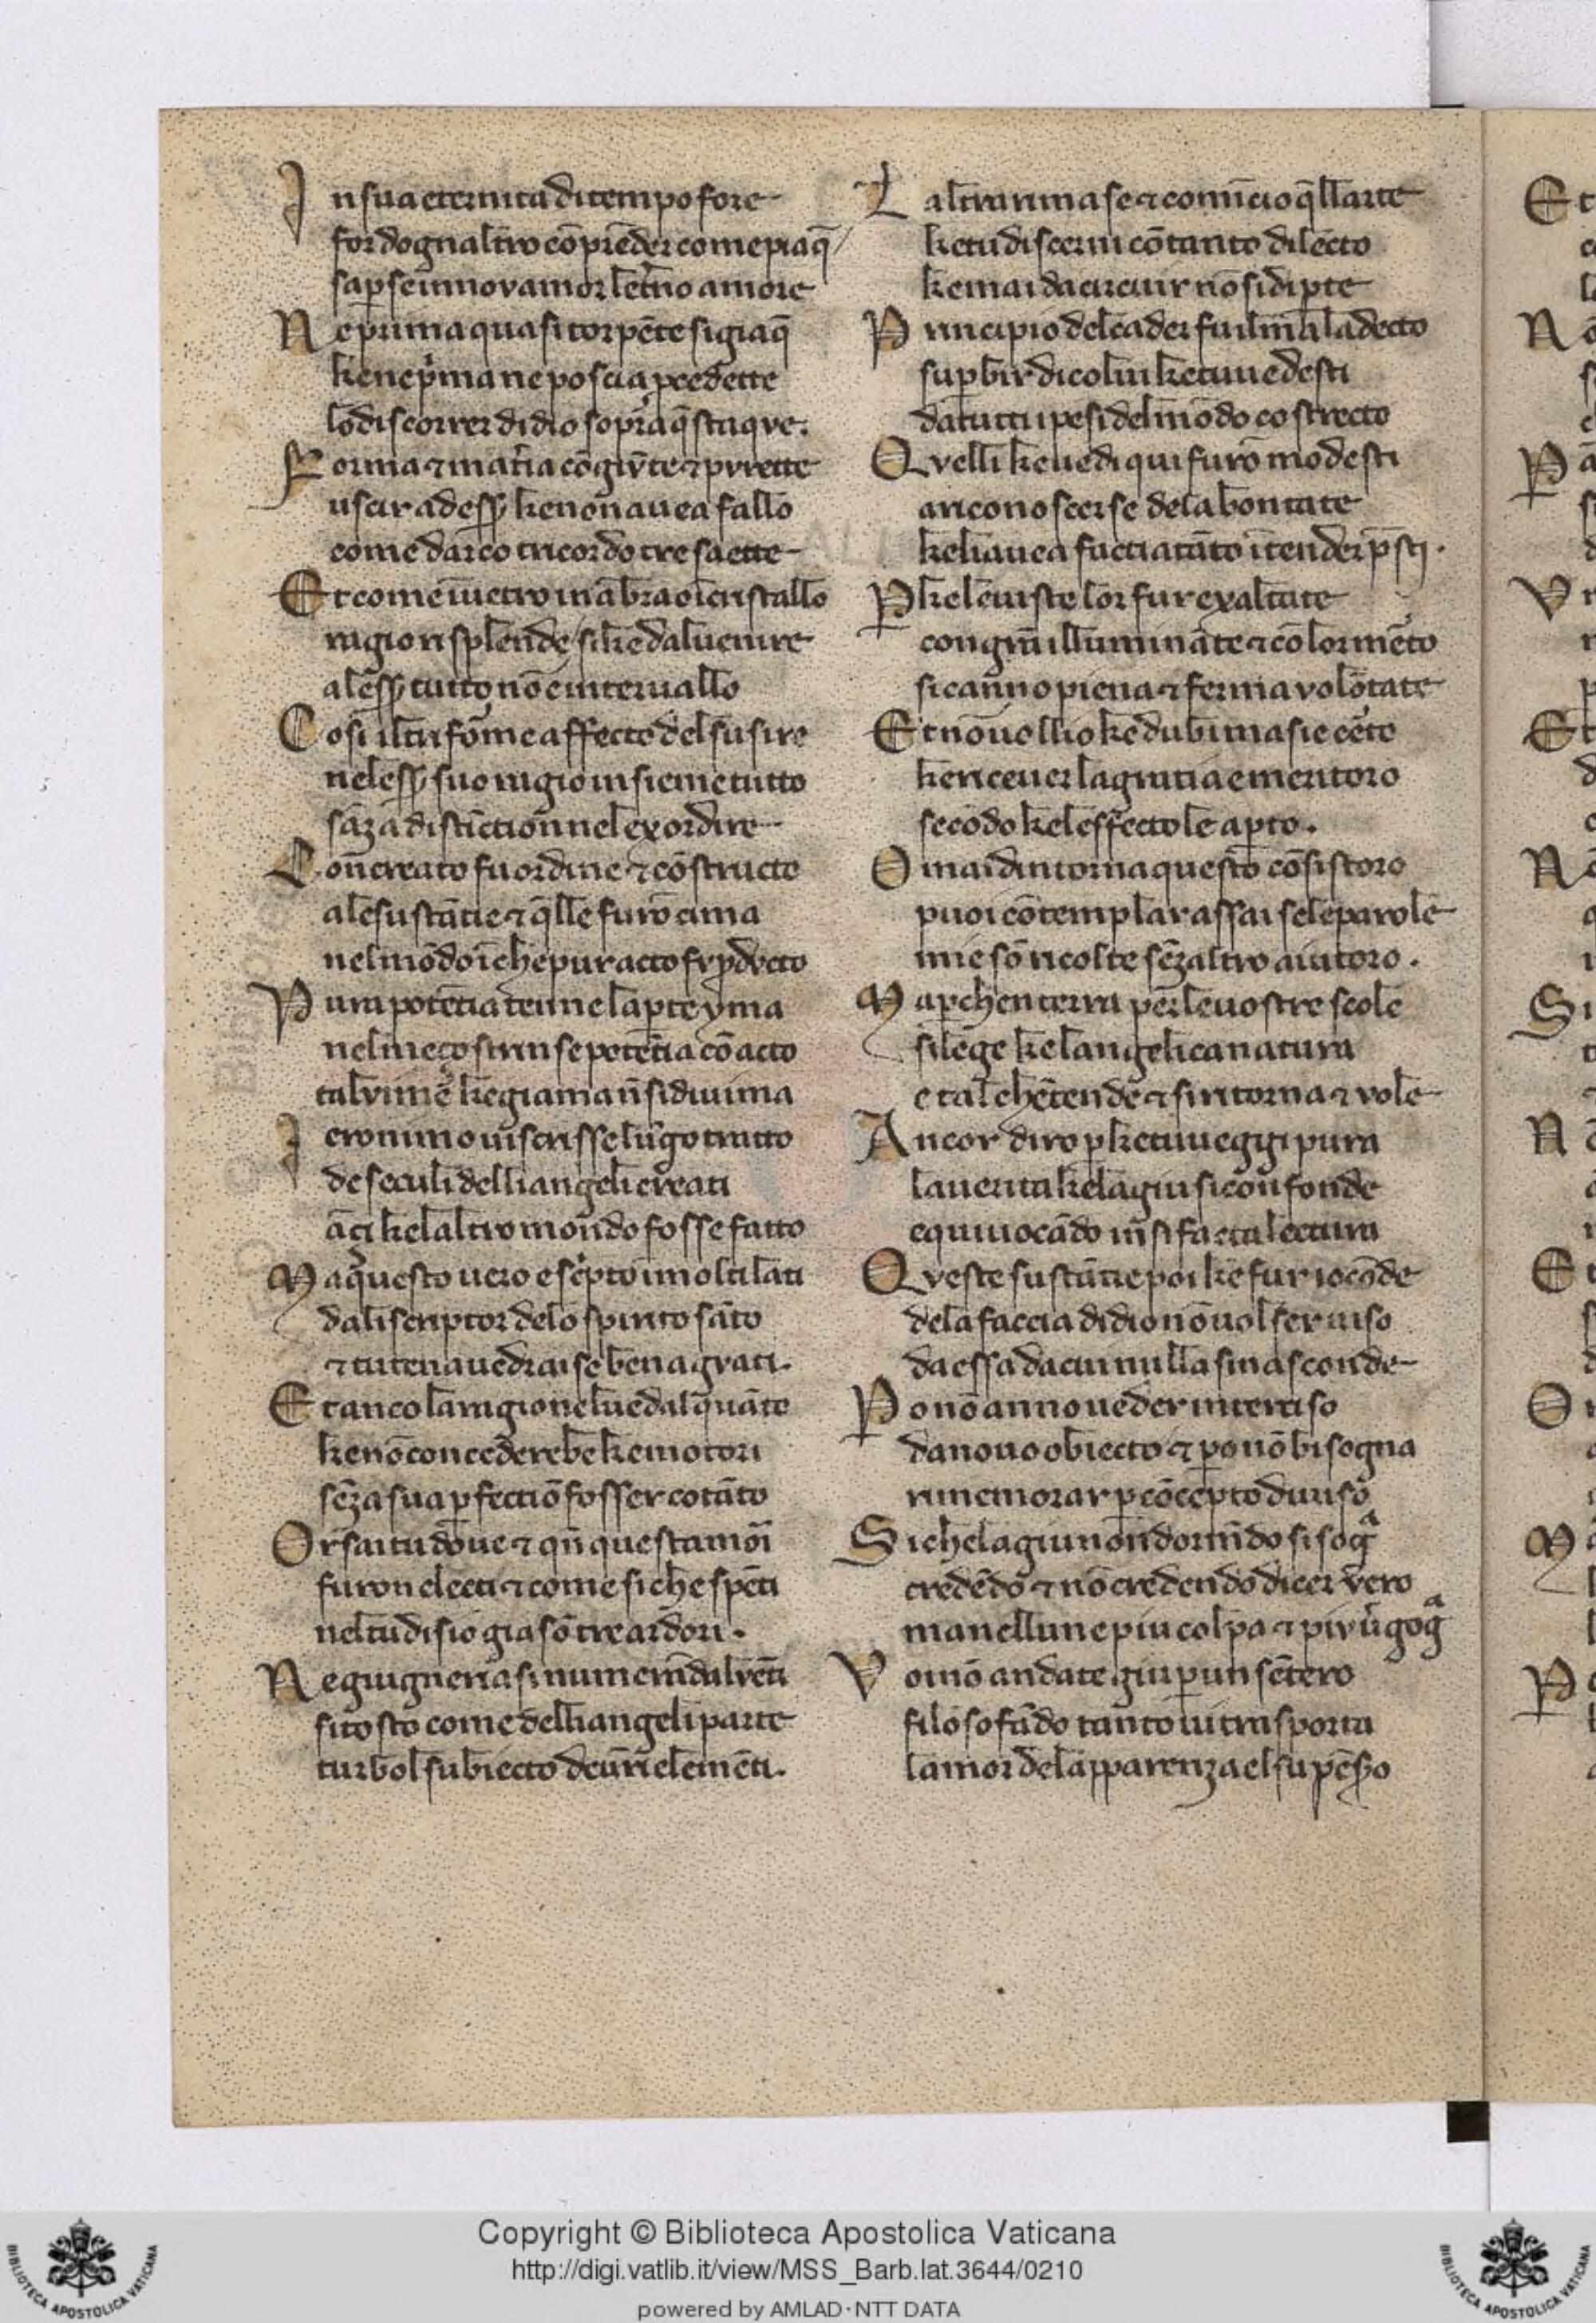 In sua eternita di tempo fore
for dogna ltro cōprēder come piaq̄
sap̱seinnovamor leťno amore
Ne prima quasi torpēte sigiaq̄
ke ne pͥma ne poscia p̱cedette
lo discorrer di dio sopra q̄staqve.
Forma ⁊ maťia cōgiv̄te ⁊ pvrette
uscir ad esš ke non auea fallo
come darco tricordo tre saette
Et come ī uetro in ābra o ī cristallo
ragio risplende / sike dal uenire
al esš tutto nō e interuallo
Cosi il tri forme affecto del su sire
nel esš suo ragio insieme tutto
sāza distīction nel exordire
Concreato fu ordine ⁊ cōstructo
ale sustātie ⁊ q̄lle furō cima
nel mōdo ī che pur acto fv pdvcto
Pura potētia tenne la p̱te yma
nel meço strinse potētia cō acto
tal vime ke giamai n̄ si diuima
Ieronimo ui scrisse lūgo tratto
de seculi delli angeli creati
āçi kel altro mondo fosse fatto
Ma questo uero e scͥpto ī molti lati
dali scriptor delo spirito sāto
⁊ tu tenauedrai se bene agvati.
Et anco la ragione lue dalquāto
ke nō concederebe ke motori
sēza sua p̱fectiō fosser cotāto
Or sai tu doue ⁊ qn̄ questi amori
furon electi ⁊ come si che spēti
nel tu disio gia sō tre ardori.
Ne giugneria si numerādalvēti
si tosto come delli angeli parte
turbo lsubiecto de ūri elemēti.
Laltra rimase ⁊ comīcio q̄llarte
ke tu discerni cō tanto dilecto
ke mai da circuir nō si dip̱te
Principio del cader fu il maladecto
sup̱bir di colui ke tu uedesti
da tutti i pesi del mōdo costrecto
Qvelli ke uedi qui furō modesti
a riconoscerse dela bontate
ke li auea facti a tāto ītender p̄sti.
P̱ ke le uiste lor fur exaltate
con gr̄a illumināte ⁊ cō lor mēto
si canno piena ⁊ ferma volōtate
Et nō uollio ke dubi ma sie ceto
ke riceuer la gratia e meritoro
secōdo ke leffecto le ap̱to.
Omai dintorna questo cōsistoro
puoi cōtemplar assai se le parole
mie sō ricolte sēzaltro aiutoro.
Ma p̱ chen terra per le uostre scole
si lege ke langelica natura
e tal chētende ⁊ si ritorna ⁊ vole
Ancor diro p̱ke tu uegi pura
la uerita ke lagiu si confonde
equiuocādo in si facta lectura
Qveste sustātie poi ke fur iocōde
dela faccia di dio nō uolser uiso
da essa da cui nulla si nasconde
P̱o nō anno ueder interciso
da nouo obiecto ⁊ p̱o nō bisogna
rimemorar p̱ cōcepto diuiso
Si che lagiu non dormēdo si sogͣ
credēdo ⁊ nō credendo dicer vero
ma nellun e piu colpa ⁊ piv v̄gogͣ
Voi nō andate giu p̱ un sētero
filosofādo tanto ui trasporta
lamor del apparenza el su pēs̄o
Copyright © Biblioteca Apostolica Vaticana
http://digi.vatlib.it/view/MSS_Barb.lat.3644/0210
powered by AMLAD·NTT DATA
BIBLIOTECA APOSTOLICA VATICANA
BIBLIOTECA APOSTOLICA VATICANA